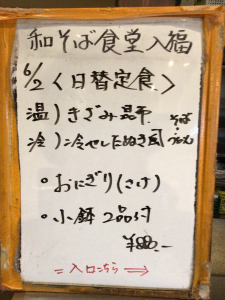 和そば食堂入福
6/2 〈日替定食〉
温)きざみ昆布
冷)冷やしたぬき風
そば・うどん
・おにぎり(さけ)
・小鉢 2品付
¥880.-
=入口こちら→